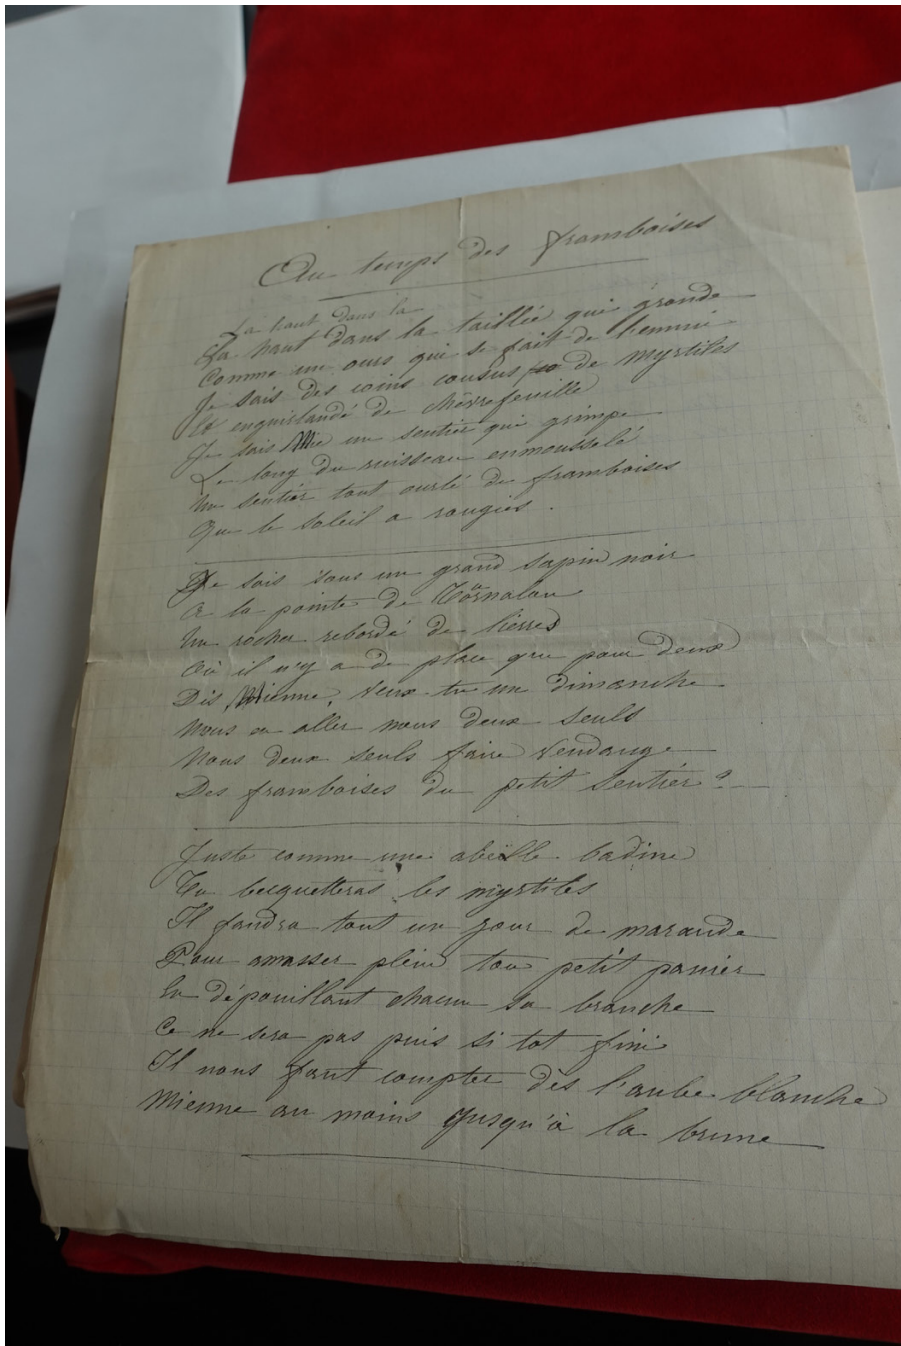 Au temps des framboises
Là haut dans la
Là haut dans la taillée qui gronde
Comme un ours qui se fait de l'ennui
Je sais des coins cousus de myrtiles
Et enguirlandé de chèvrefeuille
Je sais Mie un sentier qui grimpe
Le long du ruisseau enmousselé
Un sentier tout ourlé de framboises
Que le soleil a rougies.
Je sais sous un grand sapin noir
A la pointe de
Un rocher rebordé de lierres
Où il n'y a de place que pour deux
Dis Mienne, veux tu un dimanche
Nous en aller nous deux seuls
Nous deux seuls faire vendange
Des framboises du petit sentier?
Juste comme une abeille badine
Tu becquetteras les myrtiles
Il faudra tout un jour de maraude
Pour amasser plein ton petit panier
En dépouillant chacun sa branche
Ce ne sera pas puis si tot fini
Il nous faut compter dès l'aube blanche
Mienne au moins jusqu'à la brune